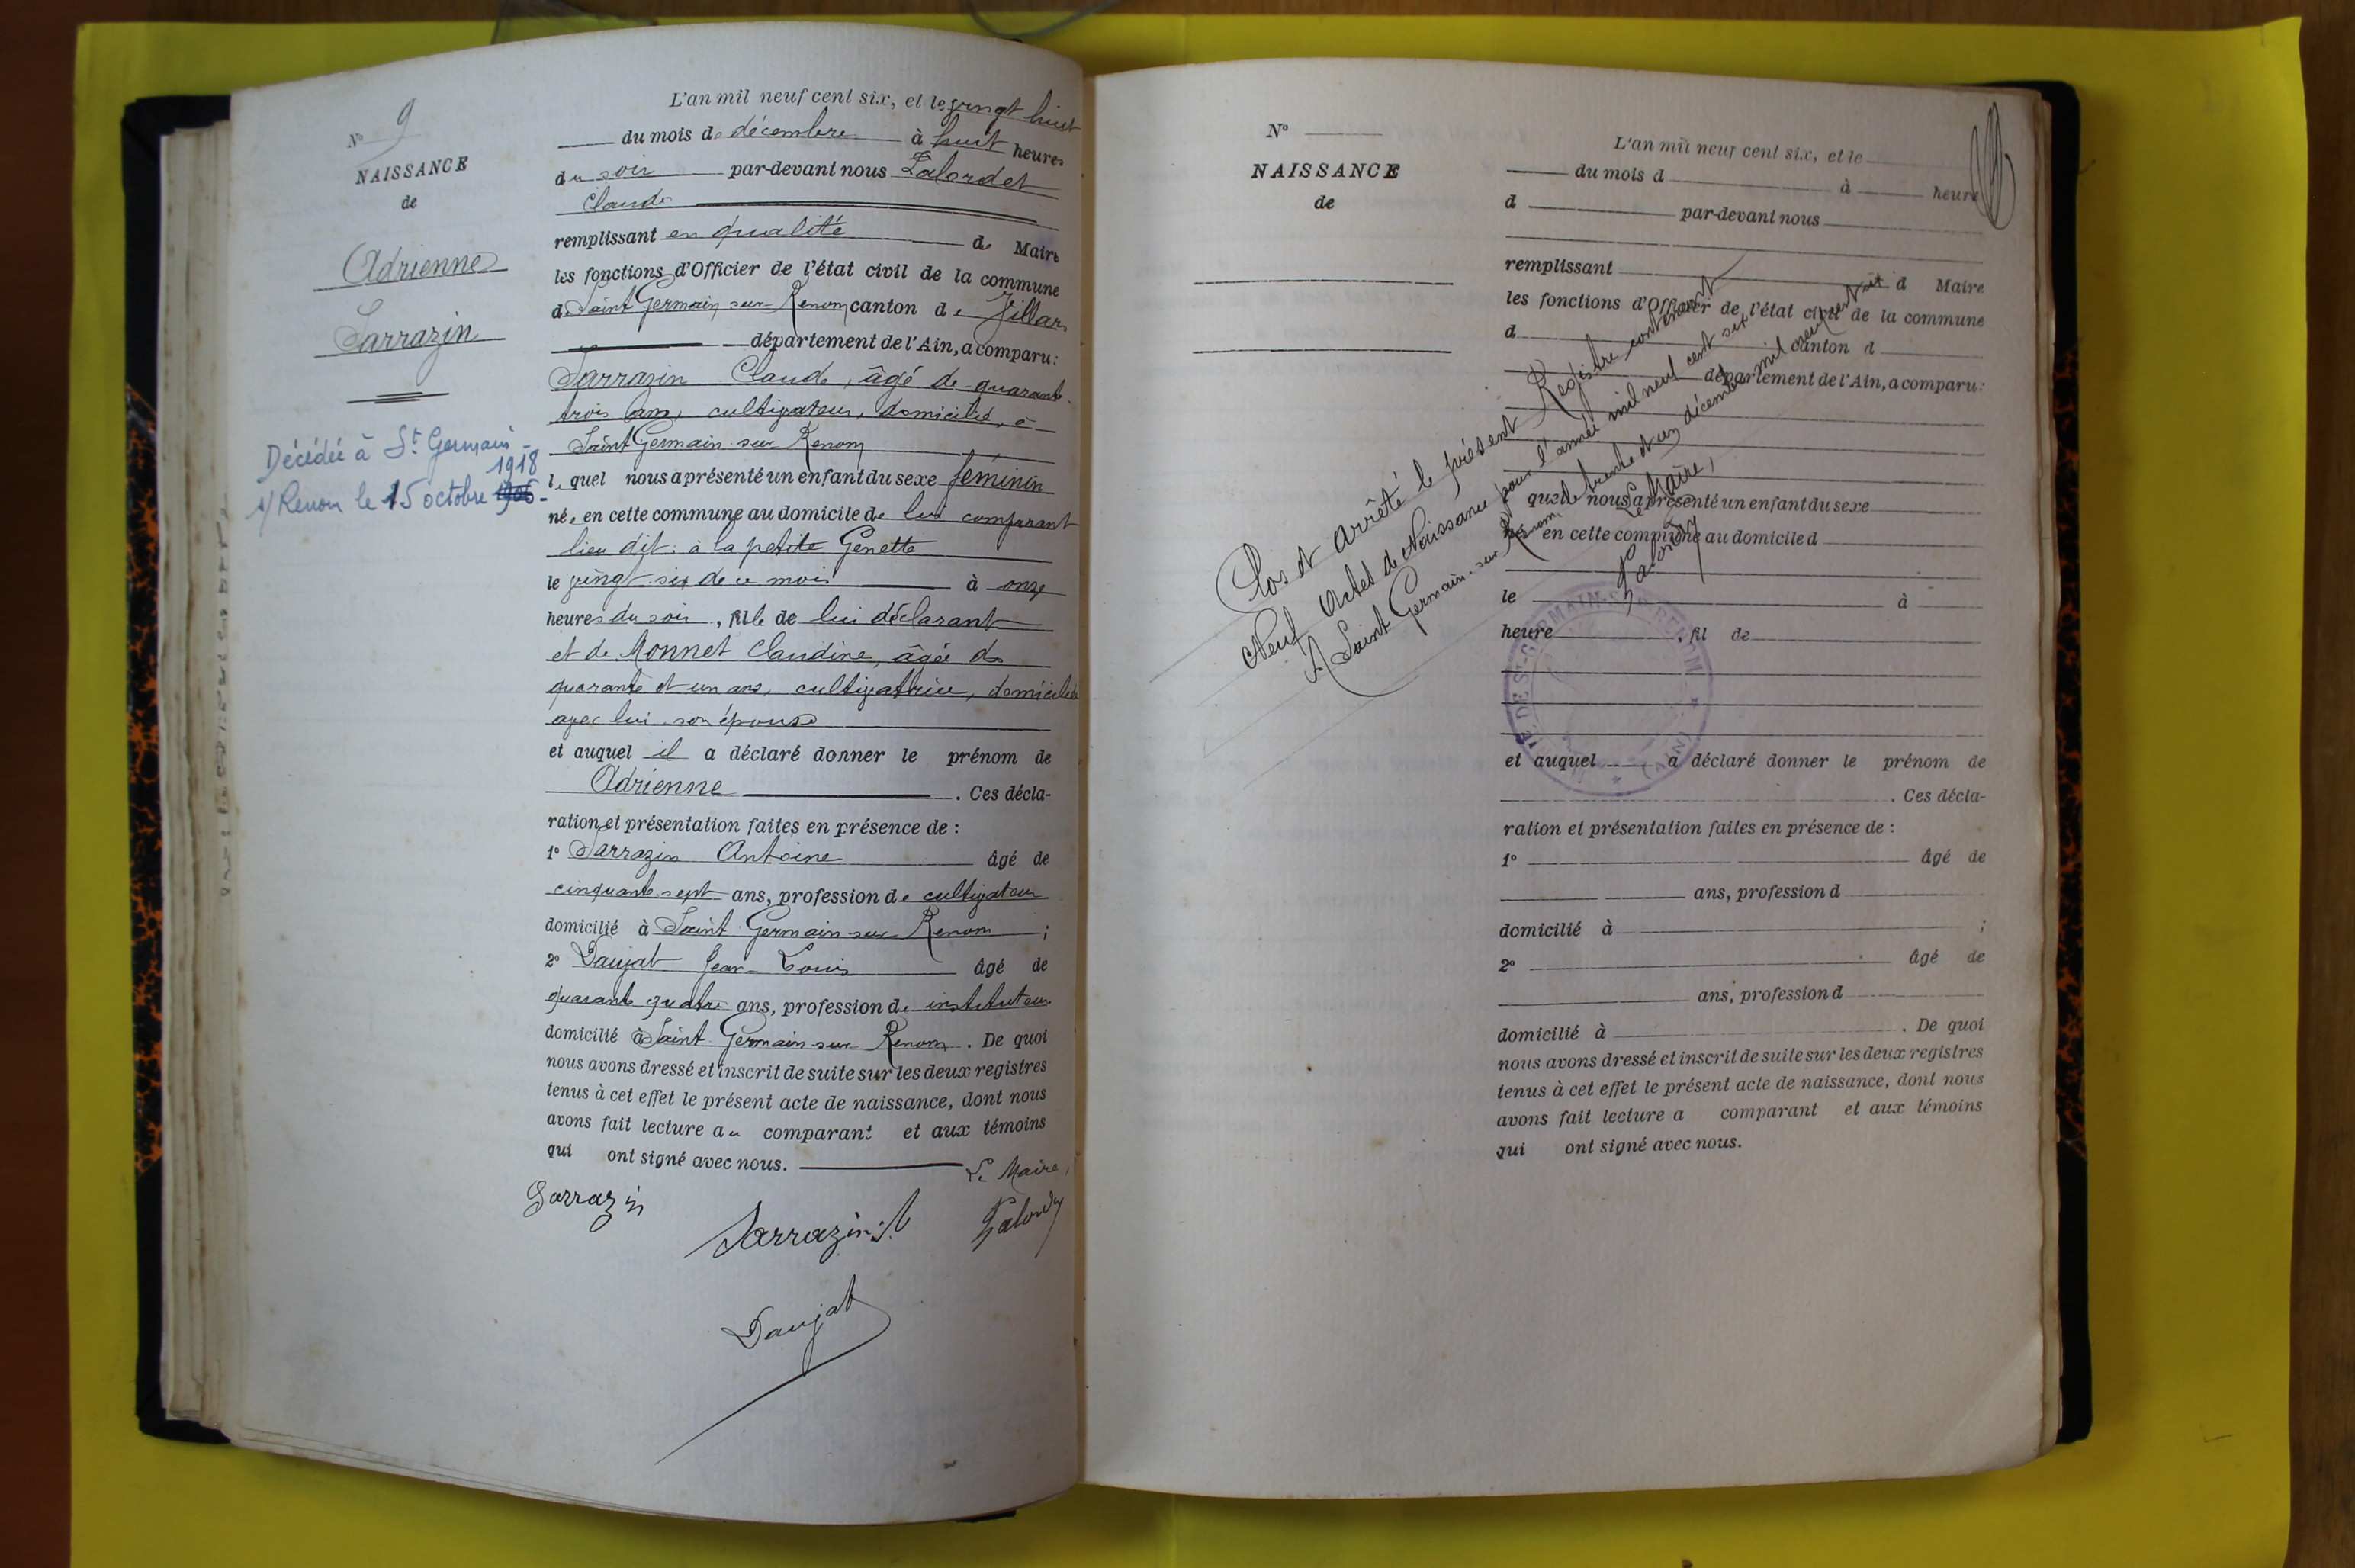 N° 9
NAISSANCE
de
Adrienne
Sarrazin
Décédée à St Germain-
1918
s/ Renom le 15 octobre 1906-
L'an mil neuf cent six, et le vingt huit
du mois de décembre à huit heures
du soir par-devant nous
Claude
remplissant en qualité de Maire
les fonctions d'Officier de l'état civil de la commune
de Saint Germain sur Renom canton de Villars
département de l'Ain, a comparu:
Sarrazin Claude, âgé de quarante-
trois ans, cultivateur, domicilié à
Saint Germain sur Renom
lequel nous a présenté un enfant du sexe féminin
née en cette commune au domicile de lui comparant
lieu dit: à la petite Genette
le vingt six de ce mois à onze
heures du soir, fille de lui déclarant
et de Monnet Claudine, âgée de
quarante et un ans, cultivatrice, domiciliée
avec lui son épouse
et auquel il a déclaré donner le prénom de
Adrienne. Ces décla-
ration et présentation faites en présence de:
1° Sarrazin Antoine âgé de
cinquante sept ans, profession de cultivateur
domicilié à Saint Germain sur Renom;
2° Daujat Jean Louis âgé de
quarante quatre ans, profession de instituteur
domicilié à Saint Germain sur Renom. De quoi
nous avons dressé et inscrit de suite sur les deux registres
tenus à cet effet le présent acte de naissance, dont nous
avons fait lecture au comparant et aux témoins
qui ont signé avec nous.
Le Maire,
Sarrazin
Sarrazin
Daujat
N°
NAISSANCE
de
L'an mil neuf cent six, et le
du mois d à heure
d par-devant nous
remplissant d Maire
les fonctions d'Officier de l'état civil de la commune
d canton d
département de l'Ain, a comparu:
quel nous a présenté un enfant du sexe
né en cette commune au domicile d
le à
heure, fil de
et auquel a déclaré donner le prénom de
. Ces décla-
ration et présentation faites en présence de:
1° âgé de
ans, profession d
domicilié à ;
2° âgé de
ans, profession d
domicilié à . De quoi
nous avons dressé et inscrit de suite sur les deux registres
tenus à cet effet le présent acte de naissance, dont nous
avons fait lecture a comparant et aux témoins
qui ont signé avec nous.
Clos et arrêté le présent Registre contenant
Neuf Actes de Naissance pour l'année mil neuf cent six
A Saint Germain sur Renom, le trente et un décembre mil neuf cent six
Le Maire,
MAIRIE DE ST-GERMAIN-SUR-RENON (AIN)